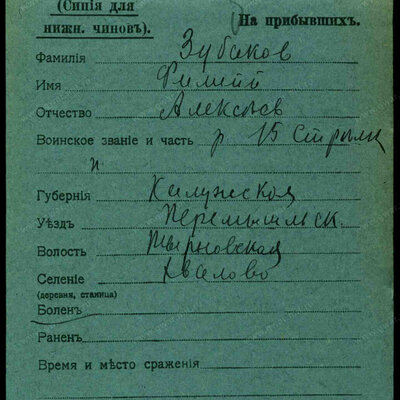 (Синія для
нижн. чиновъ).
На прибывшихъ.
Фамилія Зубаков
Имя Филипп
Отчество Алексѣев
Воинское званіе и часть р 15 Стрѣлк
п
Губернія Калужской
Уѣздъ Перемышльск.
Волость
Селеніе
(деревня, станица)
Боленъ
Раненъ
Время и мѣсто сраженія